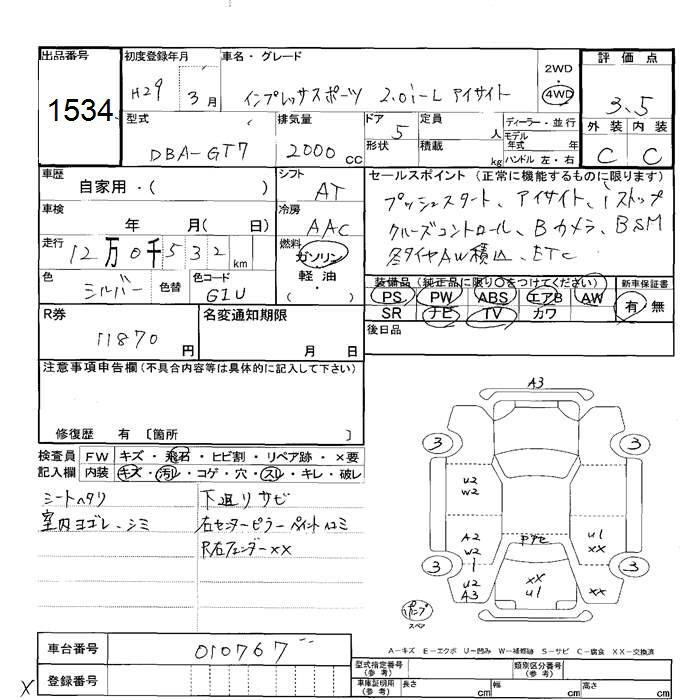 出品番号 初度登録年月 車名・グレード 評価点
1534 H29 3月 インプレッサスポーツ 2.0i-L アイサイト 2WD・4WD 3.5
型式 排気量 ドア 定員 ディーラー・並行 外装 内装
DBA-GT7 2000cc 5 人 モデル年式 年 C C
形状 積載 kg ハンドル 左・右
車歴 シフト セールスポイント(正常に機能するものに限ります)
自家用・( ) AT プッシュスタート、アイサイト、iストップ
車検 冷房 クルーズコントロール、Bカメラ、BSM
年 月( 日) AAC 冬タイヤAW積込、ETC
走行 燃料
12万0千532km ガソリン
軽油
・( )
色 色替 色コード 装備品(純正品に限り○をつけてください) 新車保証書
シルバー G1U PS PW ABS エアB AW 有・無
SR ナビ TV カワ
R券 名変通知期限 後日品
11870円 月 日
注意事項申告欄(不具合内容等は具体的に記入して下さい)
修復歴 有 〔箇所 〕
A3
検査員 FW キズ・飛石・ヒビ割・リペア跡・×要 3 3
記入欄 内装 キズ・汚レ・コゲ・穴・スレ・キレ・破レ
シートヘタリ 下廻リサビ U2
W2
室内ヨゴレ、シミ 右センターピラーペイントハコミ A2 U1
R右フェンダーXX W2 XX
1
3 3
U2 XX XX
A3 U1
パンプ
スペア
車台番号 010767 A-キズ E-エクボ U-凹み W-補修跡 S-サビ C-腐食 XX-交換済
型式指定番号(参考) 類別区分番号(参考)
X 登録番号 車庫証明用(参考) 長さ cm 幅 cm 高さ cm